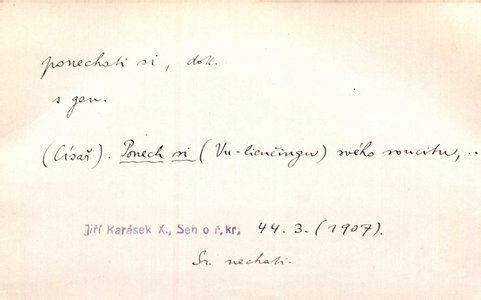 ponechati si, dok.
s gen.
(Císař). Ponech si (Vu-lienčingu) svého soucitu, ..
Jiří Karásek X., Sen o ř. kr., 44. 3. (1907).
Sr. nechati.